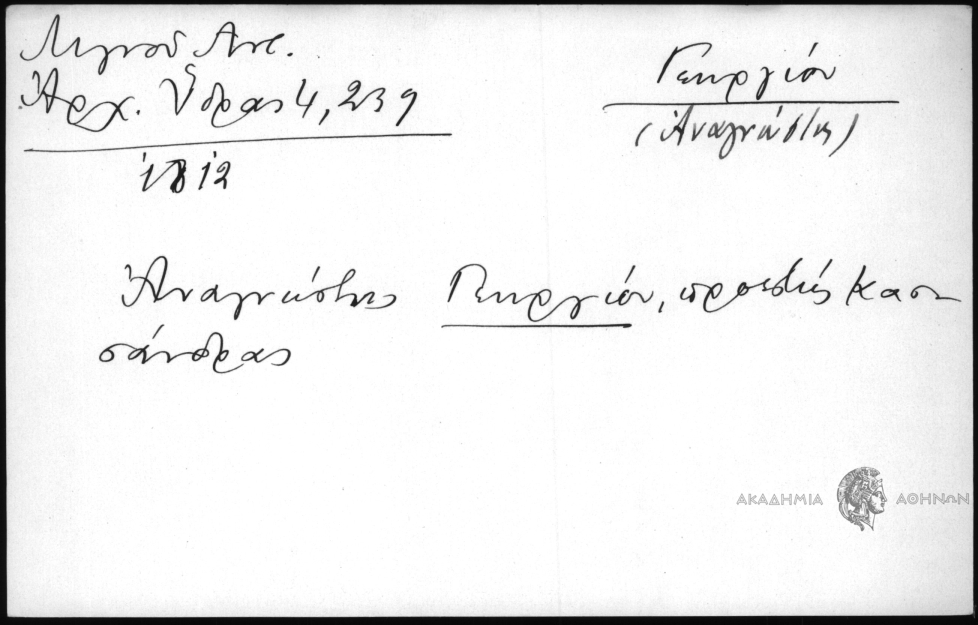 Λιγνού Αντ.
Ἀρχ. Ὕδρας 4, 239
1812
Γεωργίου
(Ἀναγνώστης)
Ἀναγνώστης Γεωργίου, προεστὼς Κασ-
σάνδρας
ΑΚΑΔΗΜΙΑ ΑΘΗΝΩΝ